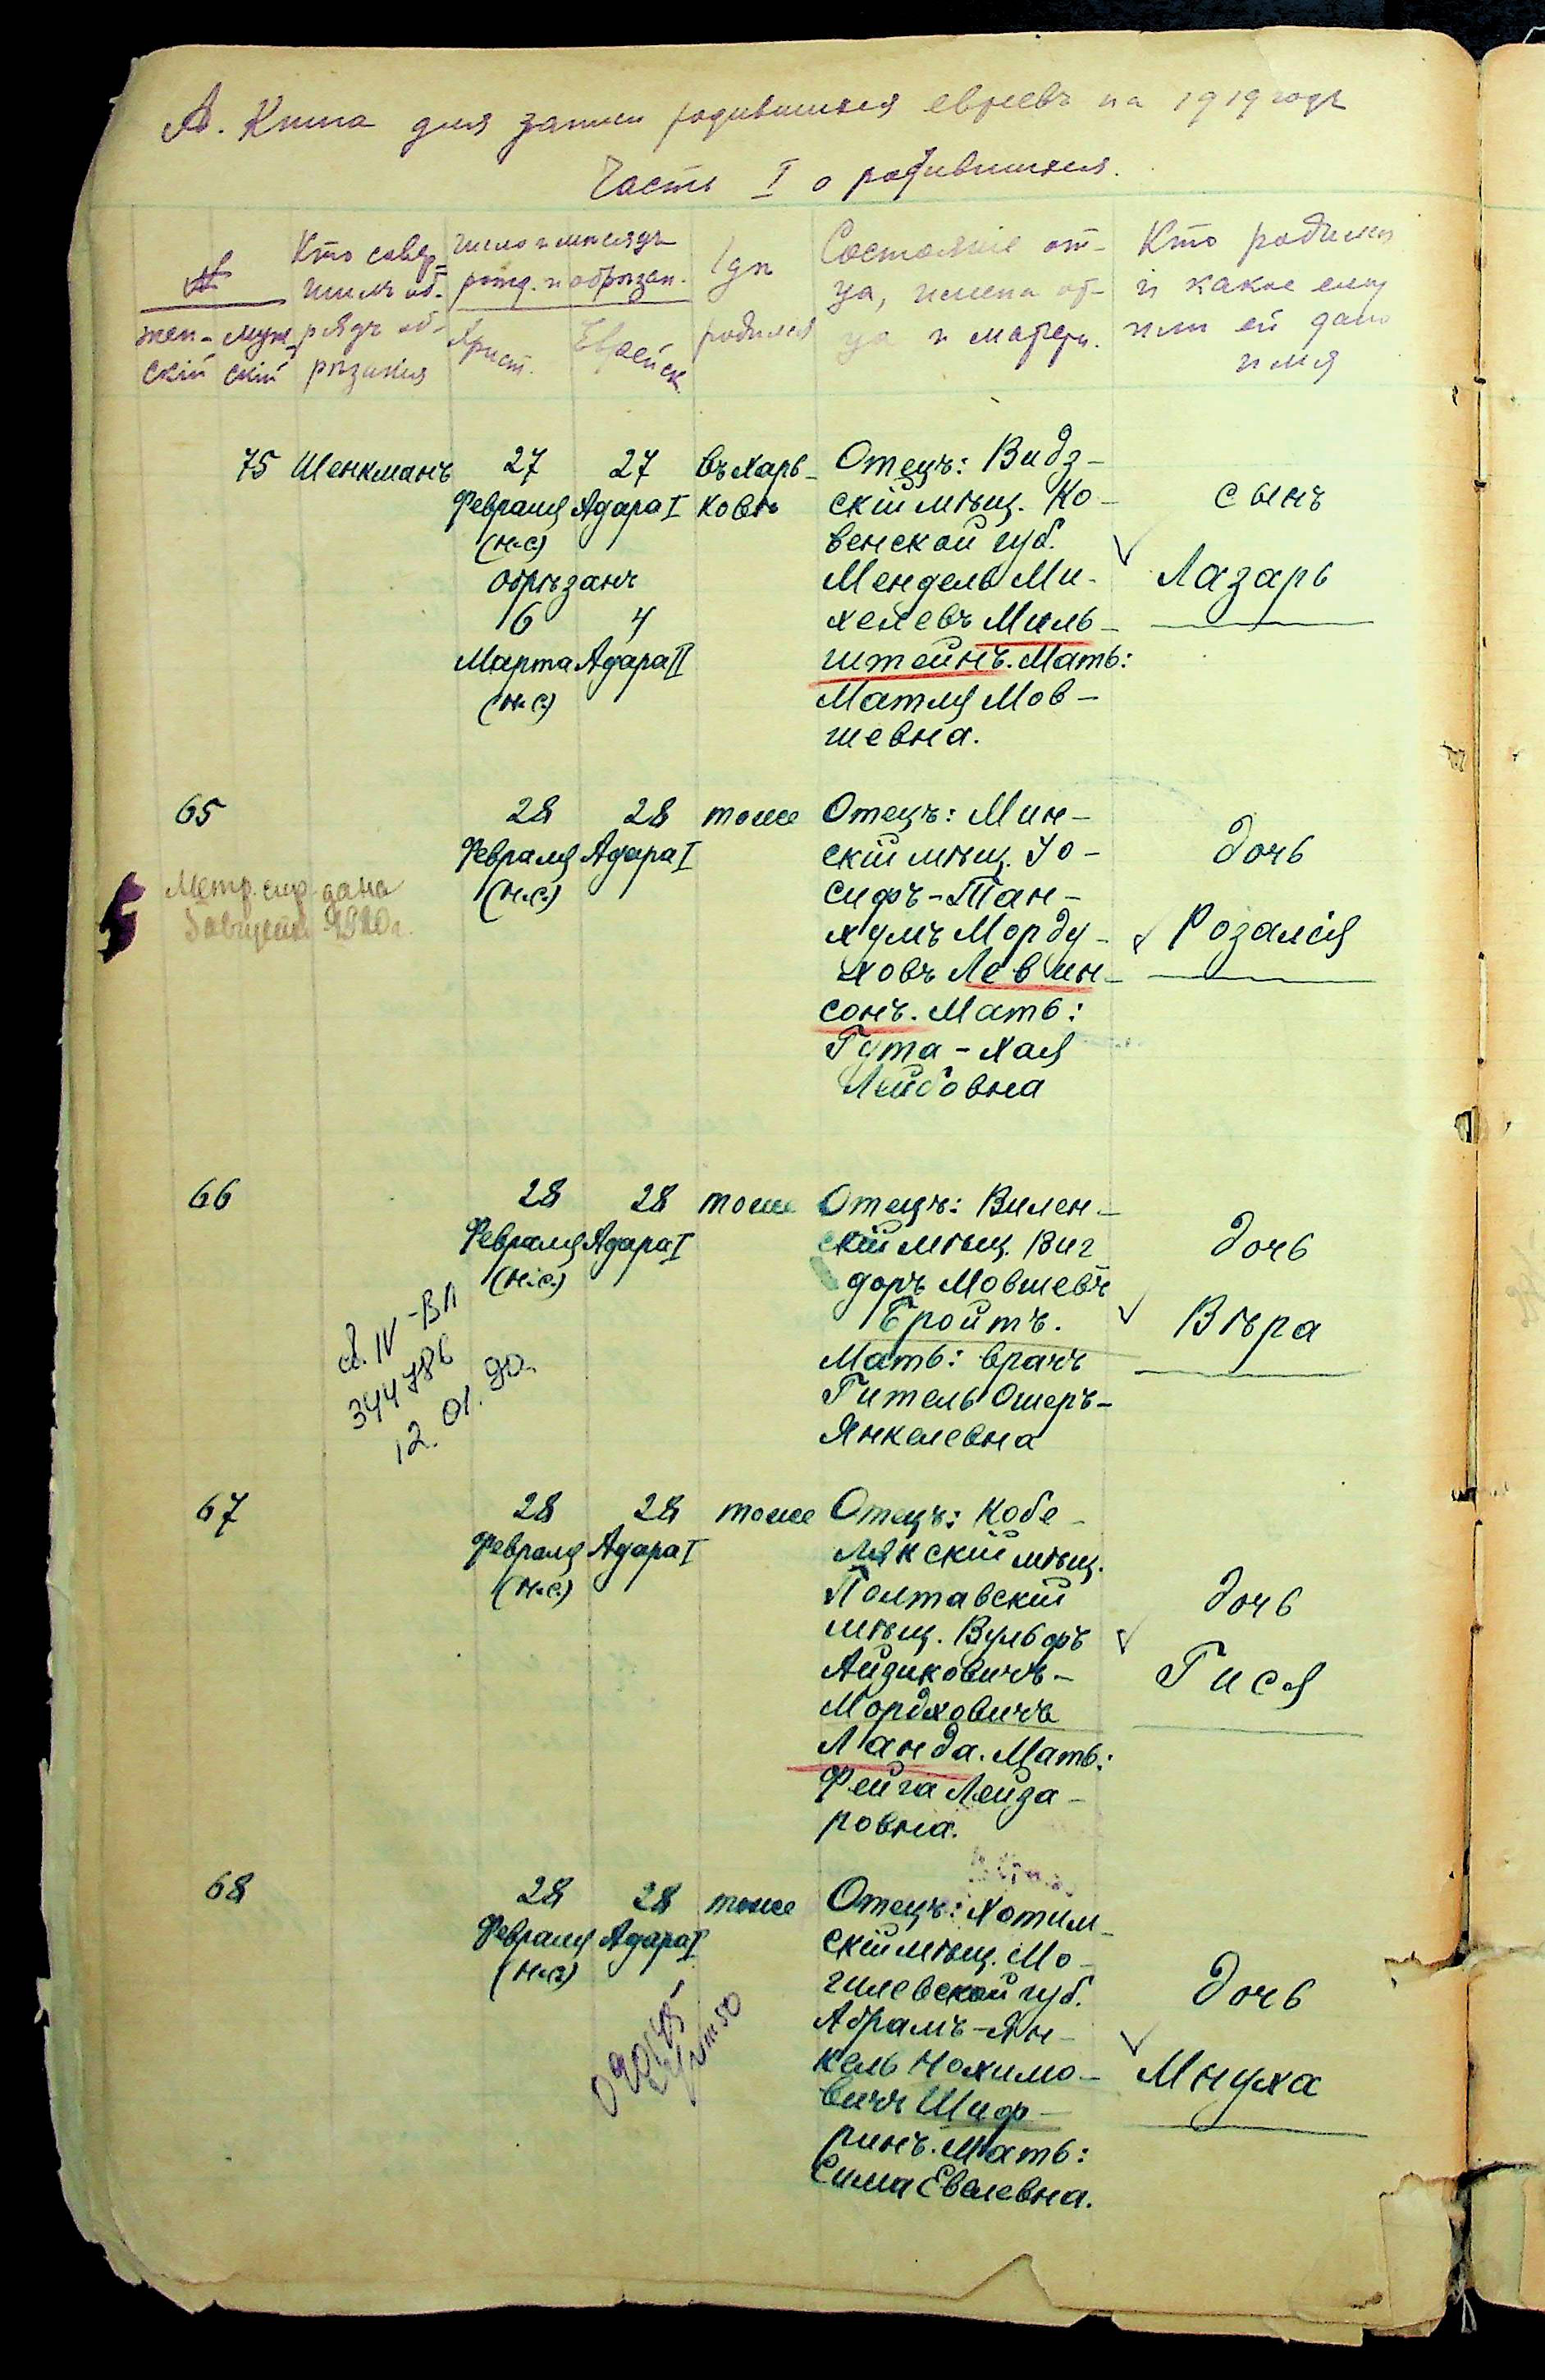 А. Книга для записи родившихся евреевъ на 1919 годъ
Часть I о родившихся.
№
жен-
скій
муж-
скій
Кто совер-
шилъ об-
рядъ об-
рѣзанія
Число и мѣсяцъ
рожд. и обрѣзан.
Христ.
Еврейск.
Гдѣ
родился
Состояніе от-
ца, имена от-
ца и матери.
Кто родился
и какое ему
или ей дано
имя
75 Шенкманъ 27 27 въ Харь-
Февраля Адара I ковѣ
(н.с.)
обрѣзанъ
6 4
Марта Адара II
(н.с.)
Отецъ: Видз-
скій мѣщ. Ко-
венской губ.
Мендель Ми-
хелевъ Миль-
штейнъ. Мать:
Матля Мов-
шевна.
сынъ
Лазарь
65 28 28 тоже
Февраля Адара I
(н.с.)
Метр. спр. дана
1920 г.
Отецъ: Мин-
скій мѣщ. Іо-
сифъ-Тан-
хумъ Морду-
ховъ Левин-
сонъ. Мать:
Гута-Хая
Лейбовна
дочь
Розалія
66 28 28 тоже
Февраля Адара I
(н.с.)
IV-ВЛ
344786
12.01.90.
Отецъ: Вилен-
скій мѣщ. Виг
доръ Мовшевъ
Бройтъ.
Мать: врачъ
Гитель Ошеръ-
Янкелевна
дочь
Вѣра
67 28 28 тоже
Февраля Адара I
(н.с.)
Отецъ: Кобе-
лякскій мѣщ.
Полтавскій
мѣщ. Вульфъ
Айзиковичъ-
Мордховичъ
Ланда. Мать:
Фейга Лейза-
ровна.
дочь
Гися
68 28 28 тоже
Февраля Адара I
(н.с.)
Отецъ: Хотим-
скій мѣщ. Мо-
гилевской губ.
Абрамъ-Ян-
кель Нохимо-
вичъ Шиф-
ринъ. Мать:
Сима Евелевна.
дочь
Мнуха